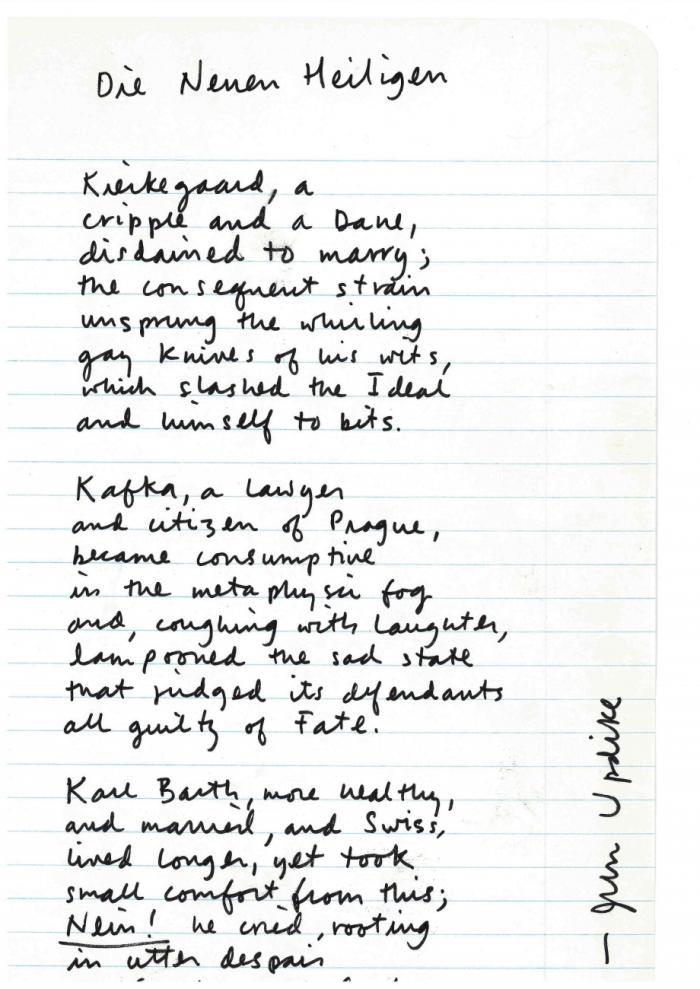 Die Neuen Heiligen
Kierkegaard, a
cripple and a Dane,
disdained to marry;
the consequent strain
unsprung the whirling
gay knives of his wits,
which slashed the Ideal
and himself to bits.
Kafka, a lawyer
and citizen of Prague,
became consumptive
in the metaphysic fog
and, coughing with laughter,
lampooned the sad state
that judged its defendants
all guilty of Fate.
Karl Barth, more healthy,
and married, and Swiss,
lived longer, yet took
small comfort from this;
Nein! he cried, rooting
in utter despair
— John Updike